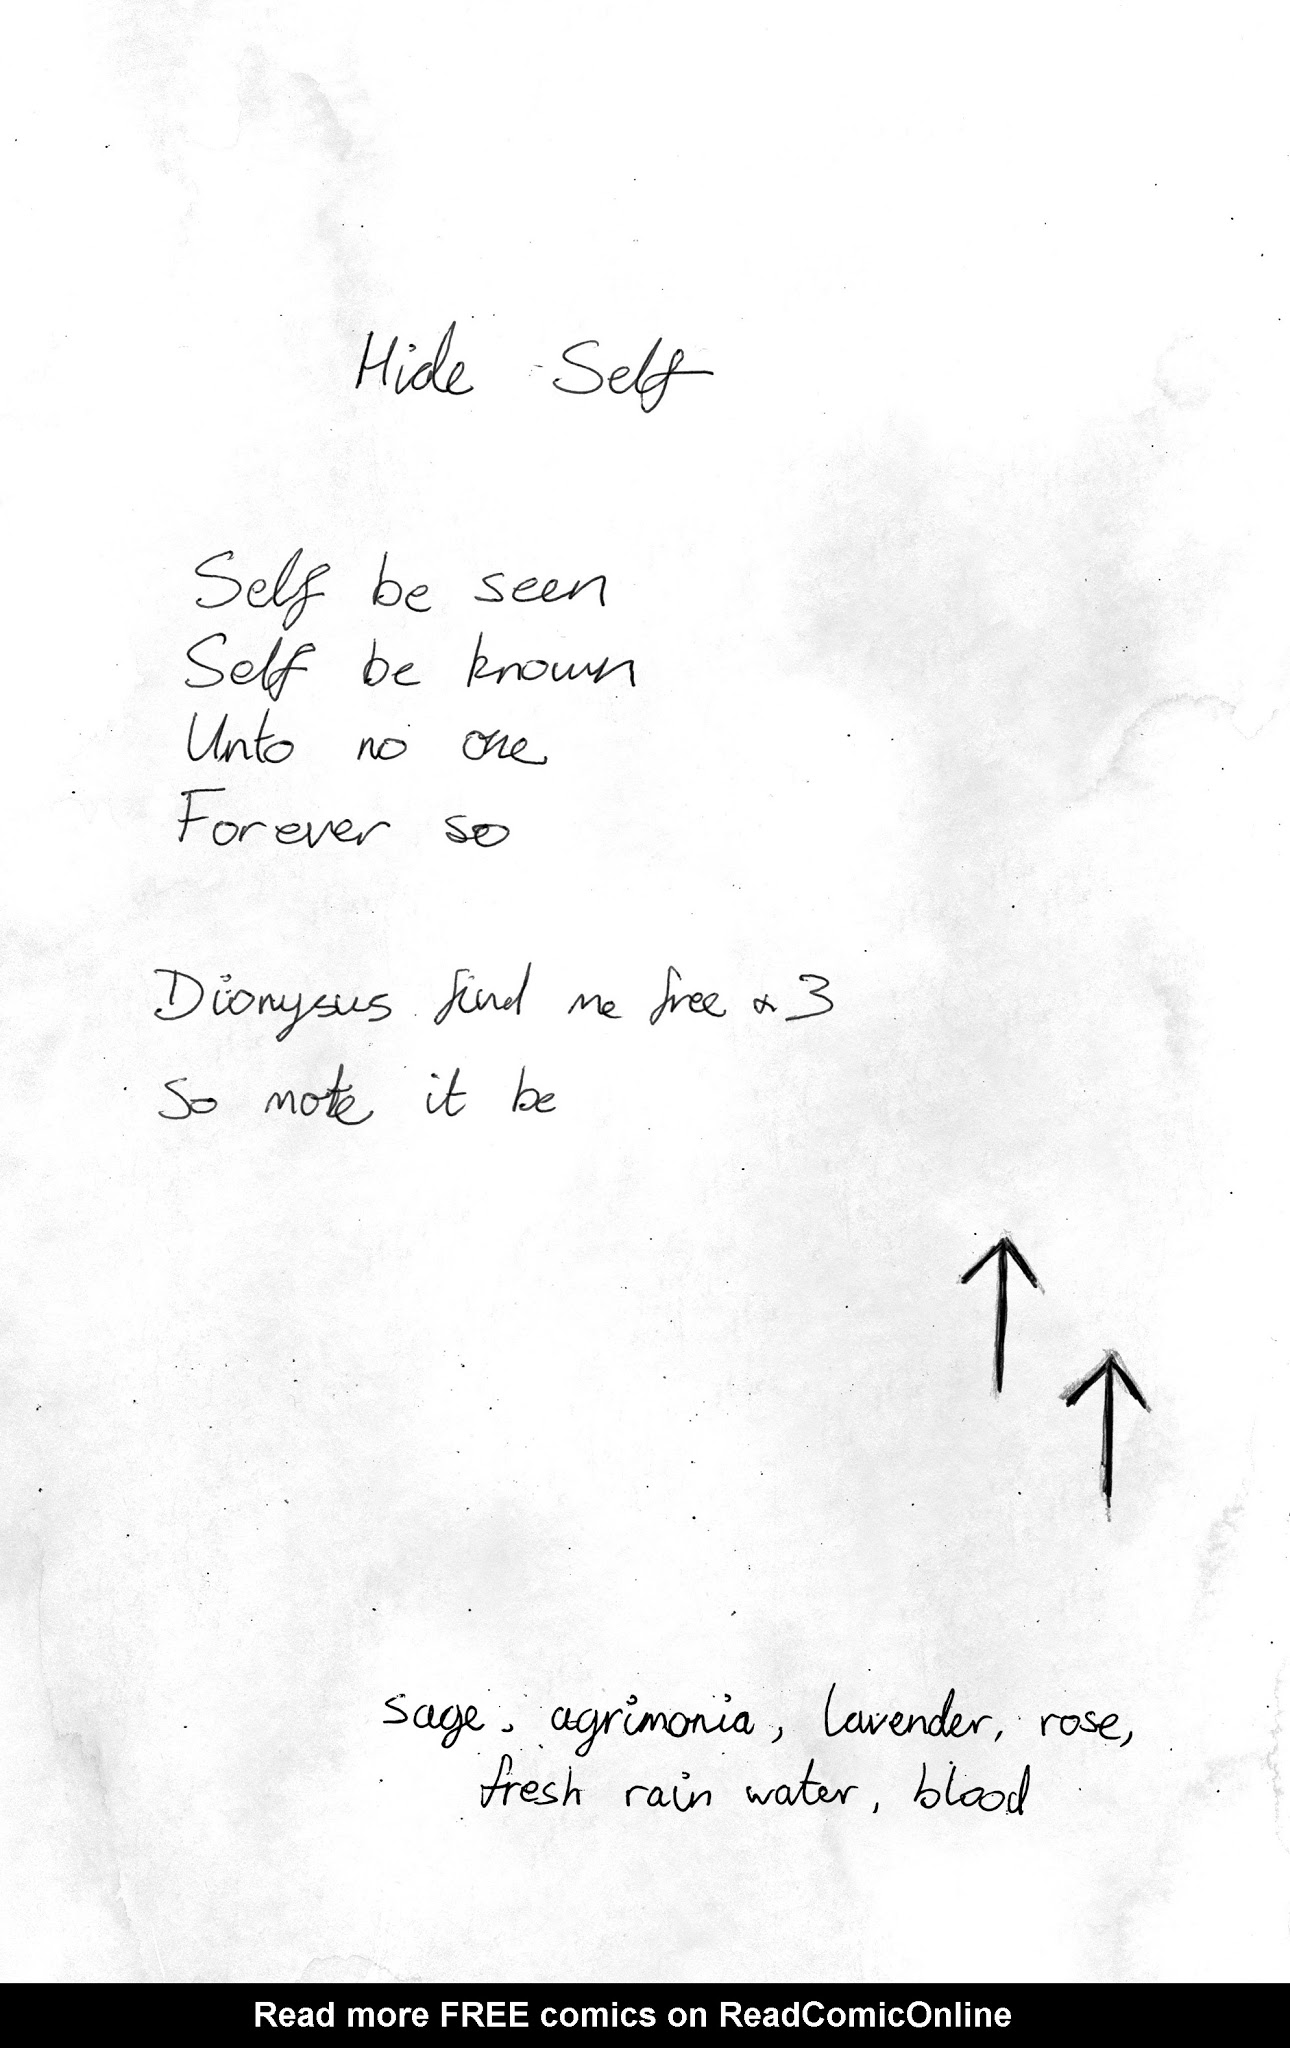 Hide Self
Self be seen
Self be known
Unto no one
Forever so
Dionysus find me free x3
So mote it be
sage, agrimonia, lavender, rose,
fresh rain water, blood
Read more FREE comics on ReadComicOnline